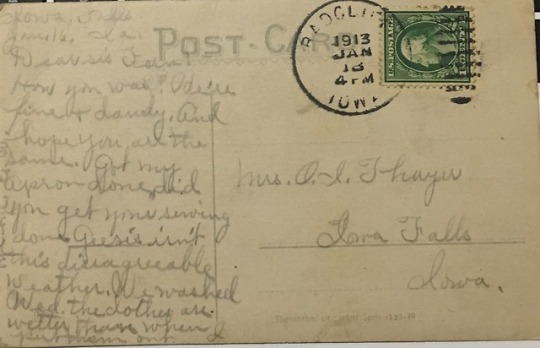 Iowa, Falls
Ia.
POST-CARD
Dear sis Fern:
How you was? We're
fine & dandy. And
hope you are the
same. Got my
apron done, did
you get your sewing
done Geesis isn't
this disagreeable
weather. We washed
Wed. the clothes are
wetter than when I
put them out
RADCLIFFE
1913
JAN
13
4 PM
IOWA
U.S. POSTAGE
Mrs. O. I. Thayer
Iowa Falls
Iowa.